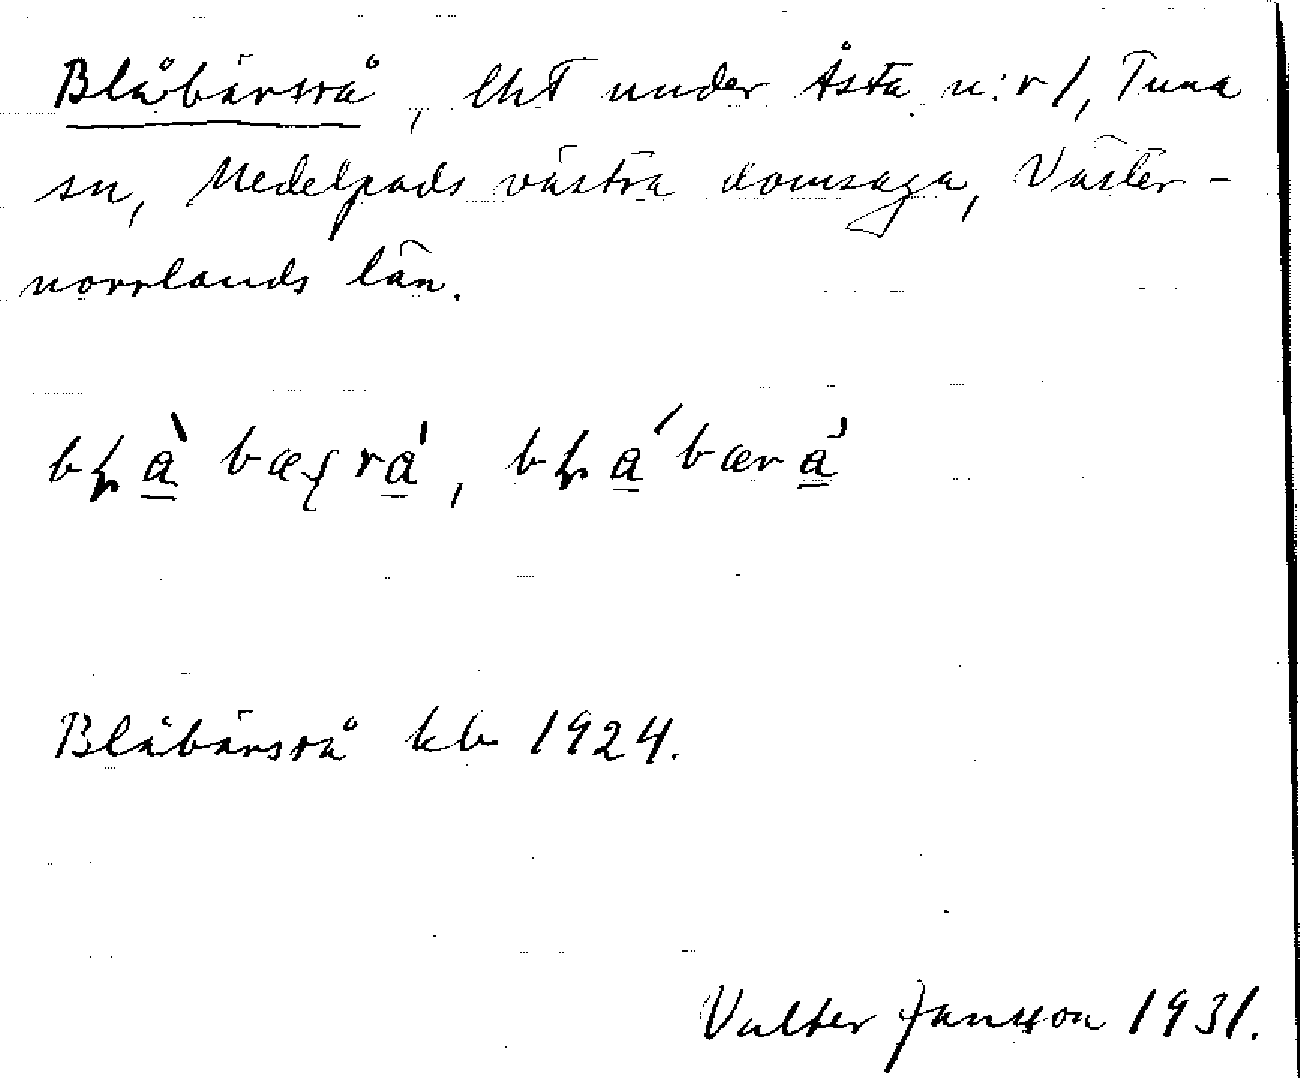 Blåbärsrå, lht under Åsta n:r 1, Tuna
sn, Medelpads västra domsaga, Väster-
norrlands län.
Blåbärsrå kb 1924.
Valter Jansson 1931.